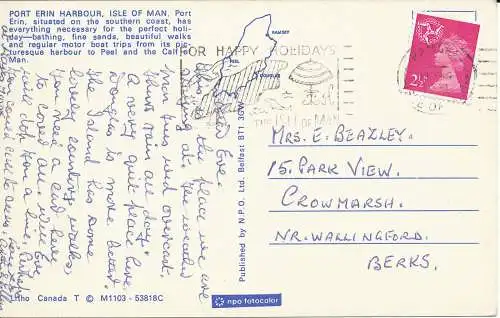 PORT ERIN HARBOUR, ISLE OF MAN, Port
Erin, situated on the southern coast, has
everything necessary for the perfect holi-
day—bathing, fine sands, beautiful walks
and regular motor boat trips from its pic-
turesque harbour to Peel and the Calf of
Man.
RAMSEY
PEEL
DOUGLAS
FOR HAPPY HOLIDAYS
THE ISLE OF MAN
2½P
Dear Eve.
This is the place we are
staying at. The weather
has been wed overcast.
This rain all day.
A very quiet place here
Douglas is more better.
The Island has some
lovely country walks.
You need a car here
to cover all. Will Eve
will drop you a line,
Published by N.P.O. Ltd. Belfast BT1 3GW
MRS. E. BEAZLEY.
15. PARK VIEW.
CROWMARSH.
NR. WALLINGFORD.
BERKS.
Litho Canada T © M1103 - 53818C
npo fotocolor